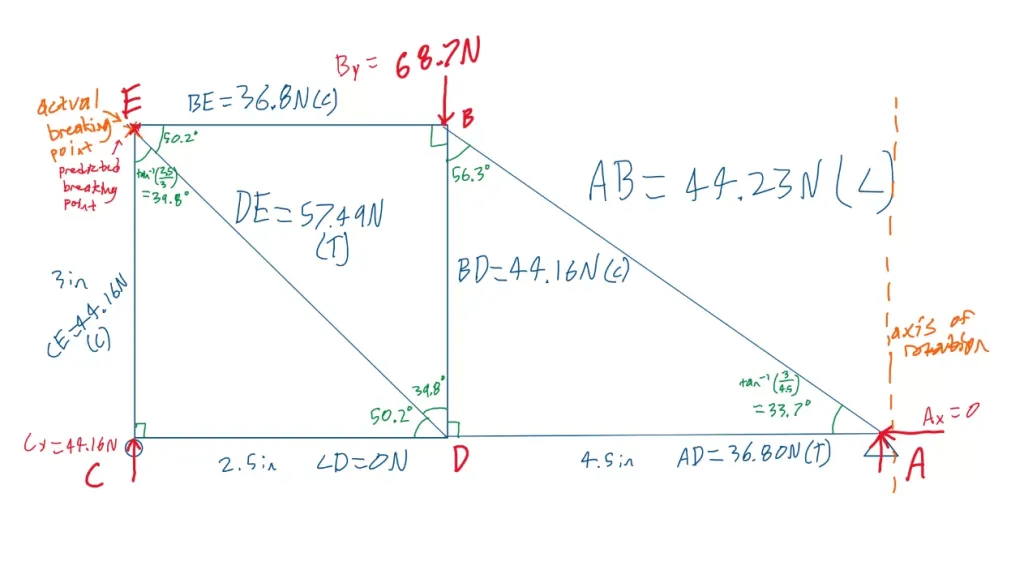 By = 68.7N
E
BE=36.8N(C)
actual
breaking
point
predicted
breaking
point
50.2°
tan⁻¹(2.5/3)
=39.8°
B
56.3°
AB=44.23N(C)
DE=57.49N
(T)
BD=44.16N(C)
3in
CE=44.16N
(C)
axis of
rotation
39.8°
50.2°
tan⁻¹(3/4.5)
=33.7°
Ax=0
Cy=44.16N
C
2.5in
CD=0N
D
4.5in
AD=36.80N(T)
A